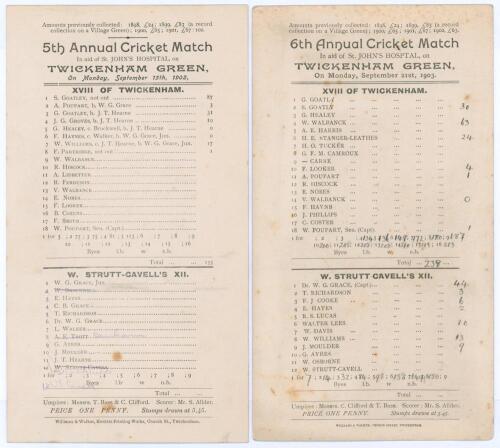 Amounts previously collected: 1898, £24; 1899, £83 (a record
collection on a Village Green); 1900, £65; 1901, £67 : 10s.
5th Annual Cricket Match
In aid of St. JOHN'S HOSPITAL, on
TWICKENHAM GREEN,
On Monday, September 15th, 1902,
XVIII OF TWICKENHAM.
1 S. GOATLY, not out ... 87
2 A. POUPART, b W. G. Grace ... 3
3 G. GOATLY, b J. T. Hearne ... 31
4 J. G. GROVES, b J. T. Hearne ... 10
5 G. HEALEY, c Brockwell, b J. T. Hearne ... 0
6 F. HAYNES, c Walker, b W. G. Grace, Jun. ...
7 W. WILLIAMS, c J. T. Hearne, b W. G. Grace, Jun. 17
8 F. PARTRIDGE, not out ... 1
9 W. WALBANCK
10 R. HISCOCK
11 A. LEDBETTER
12 H. FERGUSON
13 V. WALBANCK
14 E. NOBES
15 F. LOOKER
16 B. COHENS
17 F. SMITH
18 W. POUPART, Sen. (Capt.)
Byes l.b. w n.b.
Total ... 155
W. STRUTT-CAVELL'S XII.
1 W. G. GRACE, Jun.
3 E. HAYES
4 C. B. GRACE
5 T. RICHARDSON
6 Dr. W. G. GRACE
7 L. WALKER
8 A. E. TROTT
9 G. AYRES
10 J. MOULDER
11 J. T. HEARNE
12 W. STRUTT-CAVELL
Byes l.b. w n.b.
Total ...
Umpires: Messrs. T. Bass & C. Clifford. Scorer: Mr. S. Allder.
PRICE ONE PENNY. Stumps drawn at 5.45.
Williams & Walton, Electric Printing Works, Church St., Twickenham.
Amounts previously collected: 1898, £24; 1899, £83 (a record
collection on a Village Green); 1900, £65; 1901, £67; 1902, £62
6th Annual Cricket Match
In aid of St. JOHN'S HOSPITAL, on
TWICKENHAM GREEN,
On Monday, September 21st, 1903.
XVIII OF TWICKENHAM.
1 G. GOATLY
2 S. GOATLY ... 30
3 G. HEALEY
4 W. WALBANCK ... 63
5 A. E. HARRIS
6 H. E. STANGER-LEATHES ... 24
7 H. O. TUCKER
8 G. F. M. CAMROUX
9 — CARNE
10 F. LOOKER ... 4
11 A. POUPART ... 1
12 R. HISCOCK
13 E. NOBES
14 V. WALBANCK ... 0
15 F. HAYNES
16 J. PHILLIPS
17 C. COSTER
18 W. POUPART, Sen. (Capt.) ... 1
Byes l.b. w n.b.
Total ... 238
W. STRUTT-CAVELL'S XII.
1 Dr. W. G. GRACE, (Capt.) ... 44
2 T. RICHARDSON ... 3
3 F. J. COOKE ... 6
4 E. HAYES
5 R. S. LUCAS
6 WALTER LEES ... 10
7 W. DAVIS
8 W. WILLIAMS ... 13
9 J. MOULDER ... 9
10 G. AYRES
11 W. OSBORNE
12 W. STRUTT-CAVELL
Byes l.b. w n.b.
Total ...
Umpires: Messrs. C. Clifford & T. Bass. Scorer: Mr. S. Allder.
PRICE ONE PENNY. Stumps drawn at 5.45.